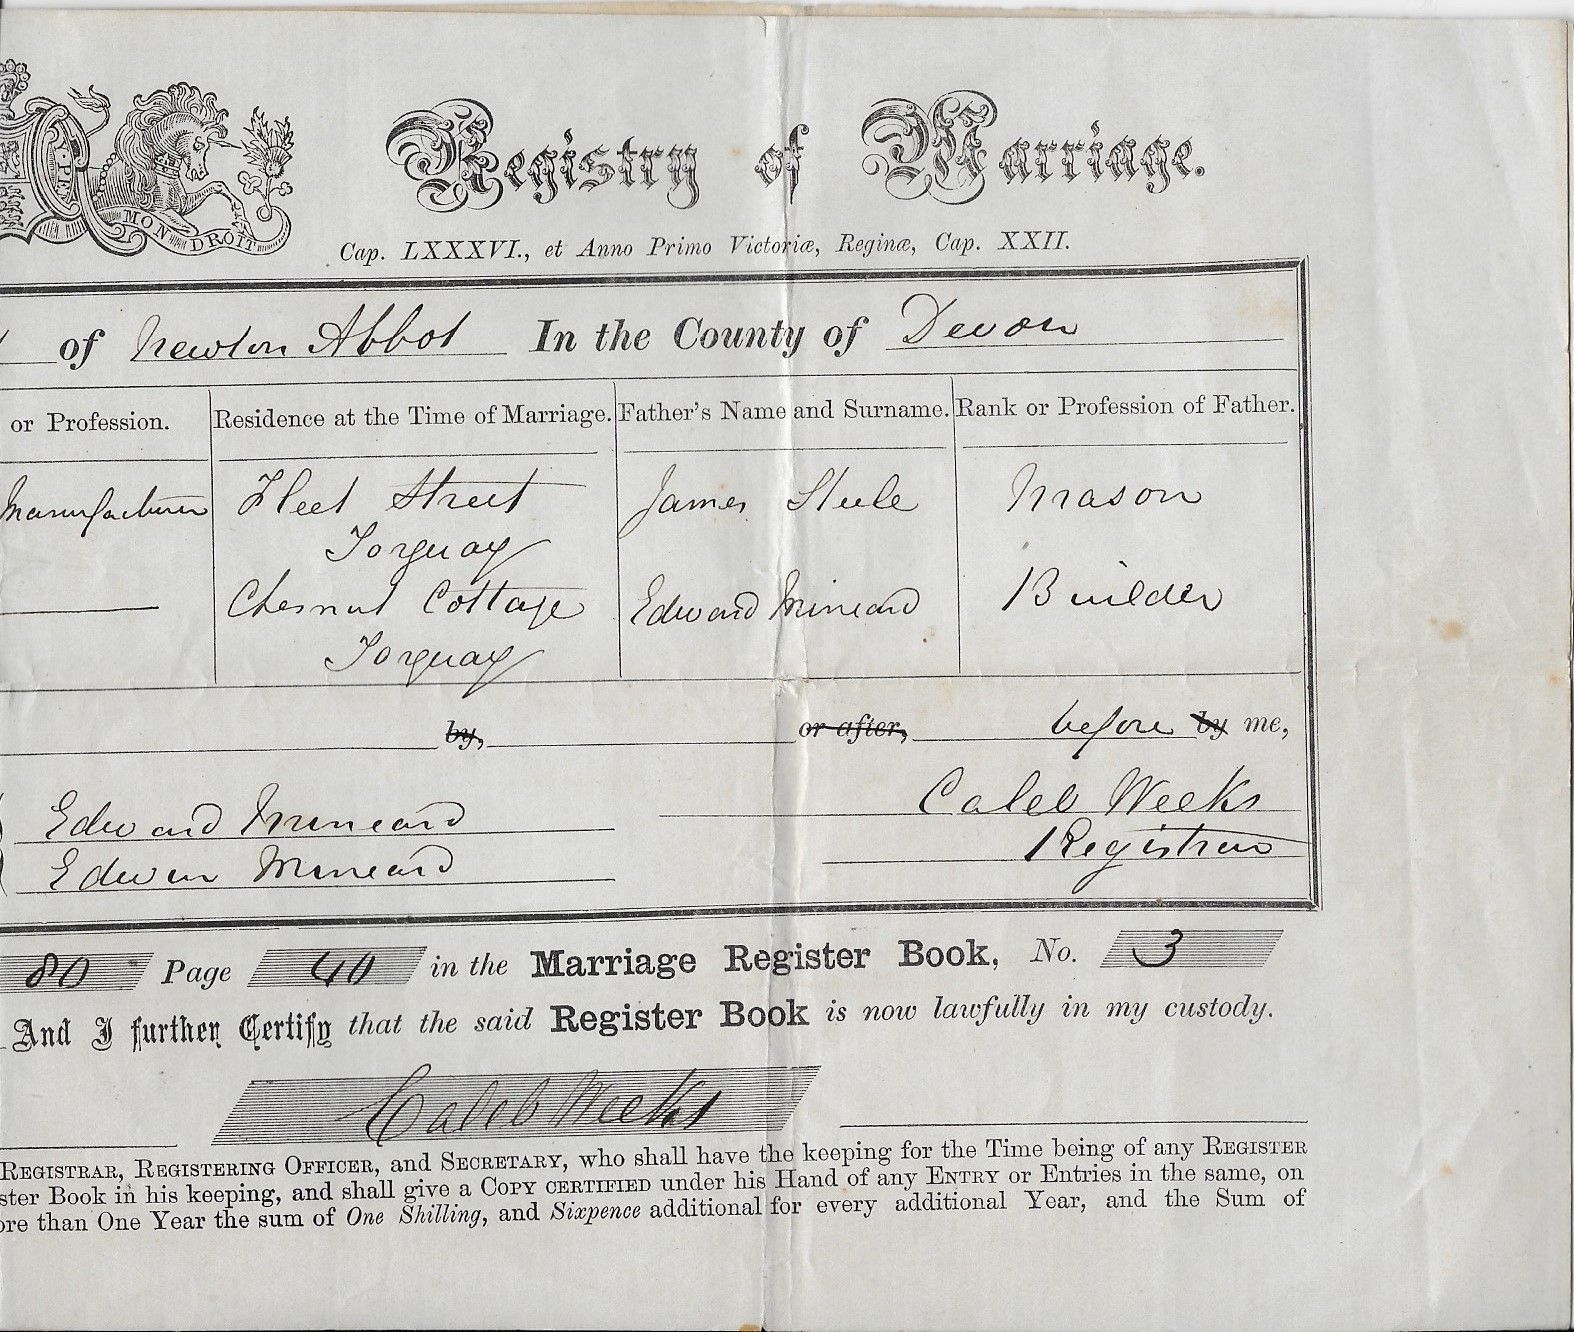 PER
MON DROIT
Registry of Marriage.
Cap. LXXXVI., et Anno Primo Victoriæ, Reginæ, Cap. XXII.
of Newton Abbot In the County of Devon
or Profession. Residence at the Time of Marriage. Father's Name and Surname. Rank or Profession of Father.
Manufacturer Fleet Street James Steele Mason
Torquay
Chesnut Cottage Edward Mineard Builder
Torquay
by, or after, before by me,
Edward Mineard Caleb Weeks
Edwin Mineard Registrar
80 Page 40 in the Marriage Register Book, No. 3
And I further Certify that the said Register Book is now lawfully in my custody.
Caleb Weeks
REGISTRAR, REGISTERING OFFICER, and SECRETARY, who shall have the keeping for the Time being of any REGISTER
ster Book in his keeping, and shall give a COPY CERTIFIED under his Hand of any ENTRY or Entries in the same, on
ore than One Year the sum of One Shilling, and Sixpence additional for every additional Year, and the Sum of